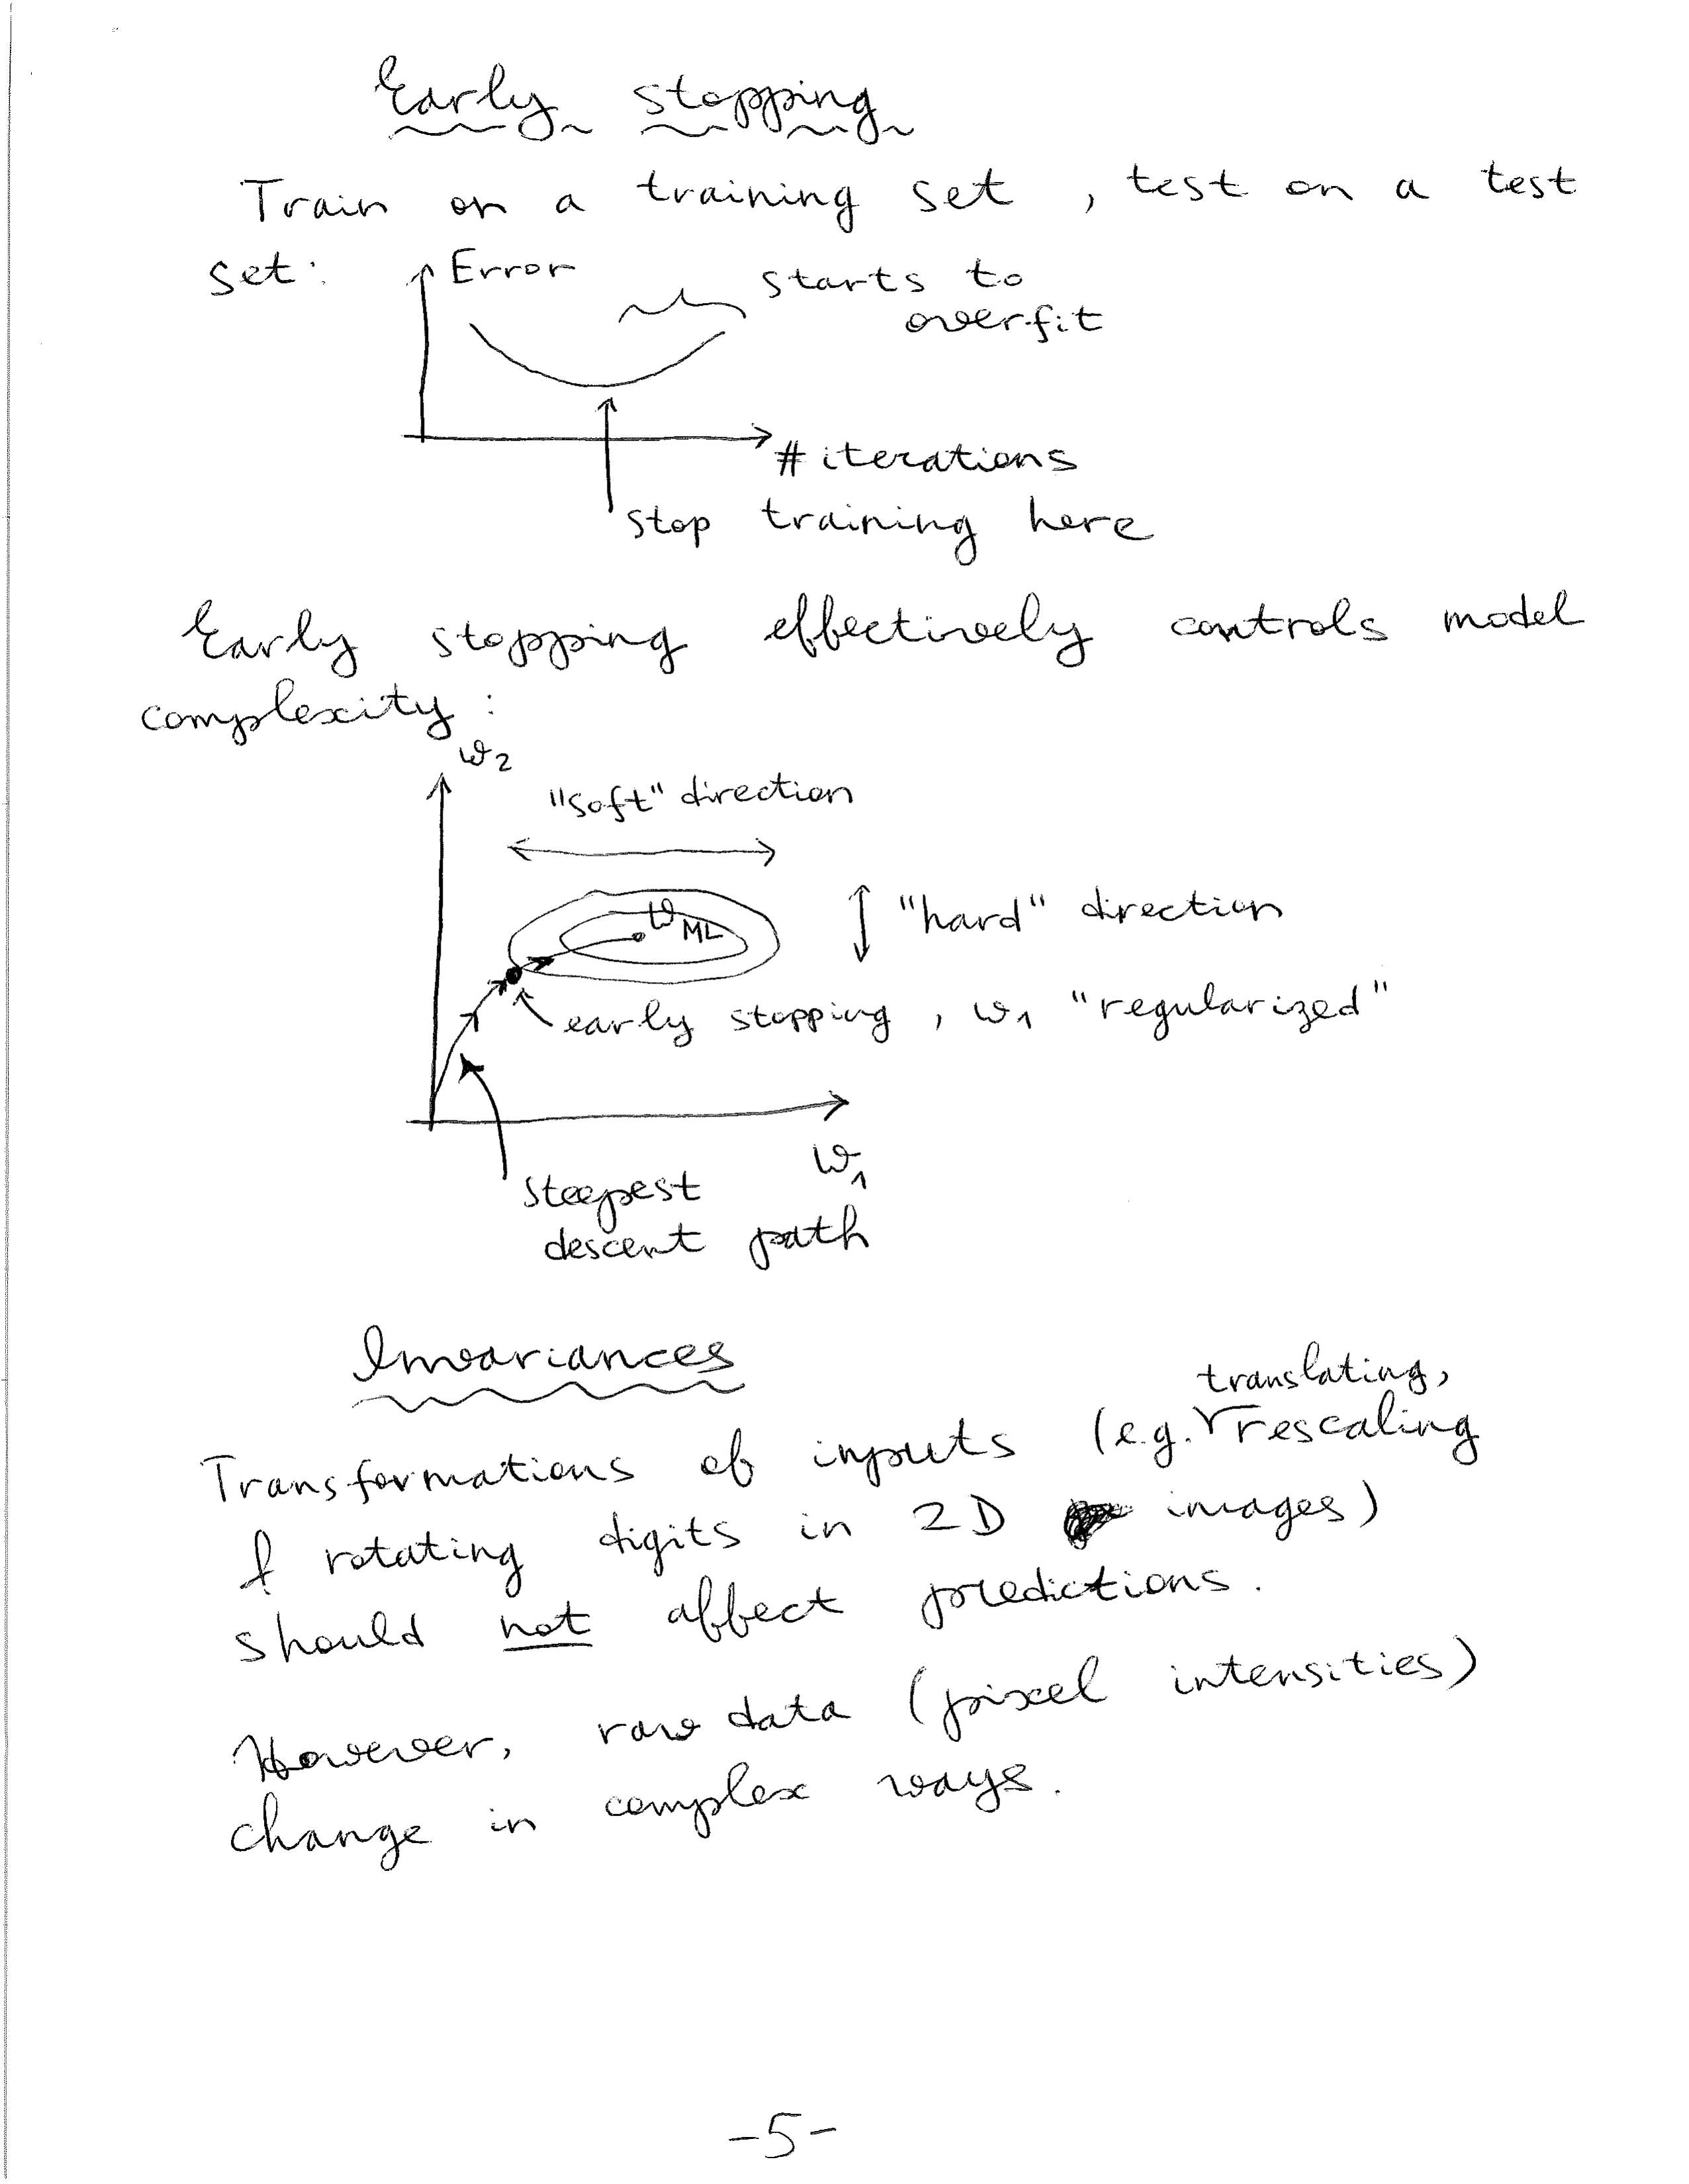 Early stopping
Train on a training set, test on a test
set:
Error
starts to
overfit
# iterations
stop training here
Early stopping effectively controls model
complexity:
w2
"soft" direction
wML
"hard" direction
early stopping, w1 "regularized"
w1
steepest
descent path
Invariances
translating,
Transformations of inputs (e.g. rescaling
& rotating digits in 2D images)
should not affect predictions.
However, raw data (pixel intensities)
change in complex ways.
-5-